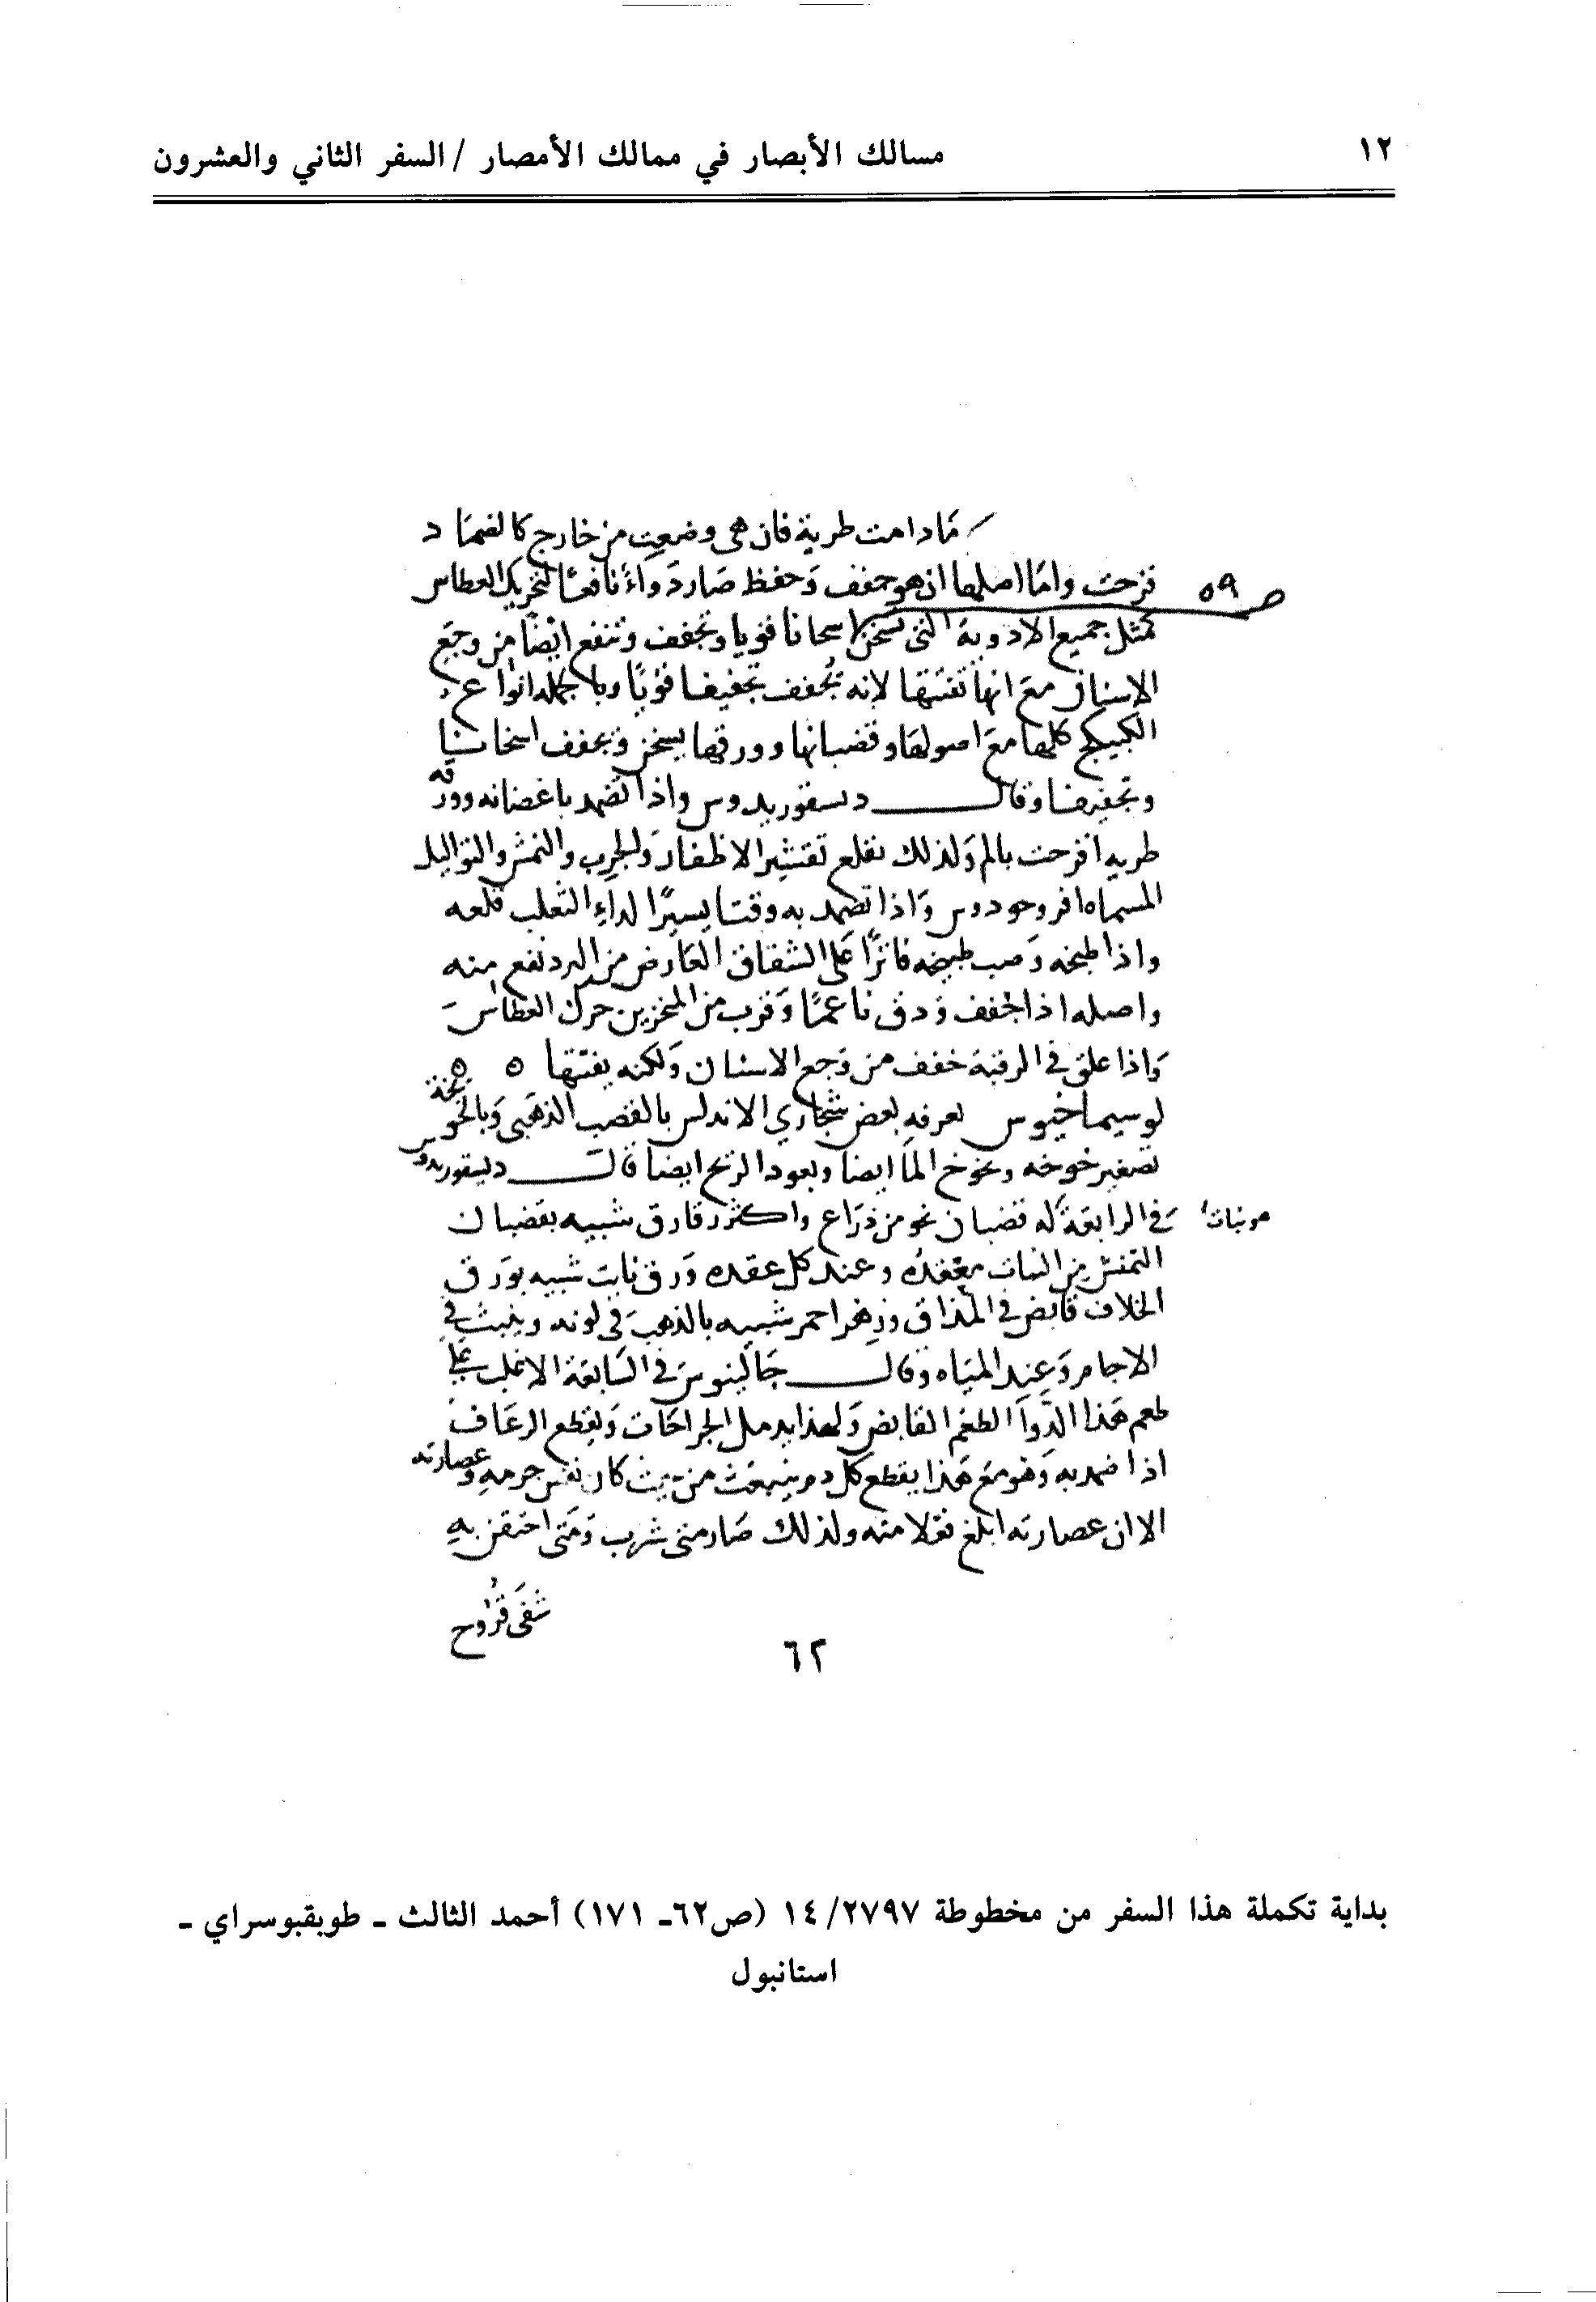 ١٢
مسالك الأبصار في ممالك الأمصار / السفر الثاني والعشرون
مادامت طرية فان هى وضعت من خارج كالضماد
ص ٥٩
قرحت واما اصلها ان هو جفف وحفظ صار دواء نافعا لتحريك العطاس
كمثل جميع الادوية التى تسخن اسخانا قويا وتجفف وتنفع ايضا من وجع
الاسنان مع انها تفتتها لانه تجفف تجفيفا قويا وبالجمله انواع
الكبيكج كلها مع اصولها وقضبانها وورقها يسخن ويجفف اسخانا
وتجفيفا وقال ديسقوريدوس واذا تضمد باغصانه وورقه
طريه اقرحت بالم ولذلك تقلع تقشير الاظفار والجرب والنمش والثواليل
المسماه افروحودوس واذا تضمد به وقتا يسيرا لداء الثعلب قلعه
واذا طبخه وصب طبيخه فاترا على الشقاق العارض من البرد نفع منه
واصله اذا جفف ودق ناعما وقرب من المنخرين حرك العطاس
واذا علق فى الرقبة خفف من وجع الاسنان ولكنه يفتتها ٥ ٥
لوسيماخيوس تعرفه بعض شجاري الاندلس بالقصب الذهبى وبالخويخة
تصغير خوخه وبخوخ الما ايضا وبعود الريح ايضا قال ديسقوريدوس
هو نبات
فى الرابعة له قضبان نحو من ذراع واكثر رقاق شبيه بقضبان
التمنش من النبات معقده وعند كل عقده ورق نابت شبيه بورق
الخلاف قابض فى المذاق وزهر احمر شبيه بالذهب فى لونه وينبت فى
الاجام وعند المياه وقال جالينوس فى السابعة الاغلب على
طعم هذا الدوا الطعم القابض ولهذا يدمل الجراحات ويقطع الرعاف
اذا ضمد به وهو مع هذا يقطع كل دم ينبعث من حيث كان نفس جرمه وعصارته
الا ان عصارته ابلغ فعلا منه ولذلك صار متى شرب ومتى احتقن به
شفى قروح
٦٢
بداية تكملة هذا السفر من مخطوطة ١٤/٢٧٩٧ (ص٦٢ـ ١٧١) أحمد الثالث ـ طوبقبوسراي ـ
استانبول